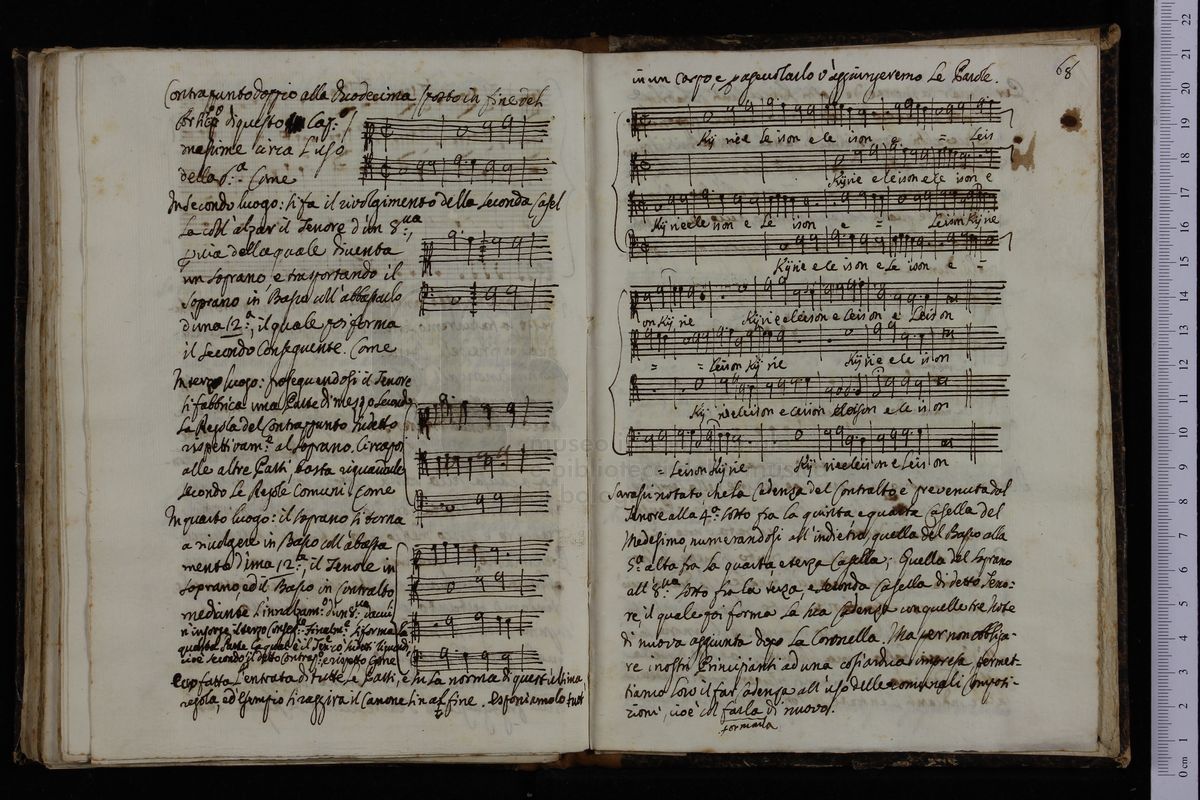 Contrapunto doppio alla Duodecima posto in fine del
di questo Cap.º
massime circa l'uso
della 6.ª Come
In secondo luogo: si fa il rivolgimento della seconda Casel
la coll'alzar il Tenore d'un 8.va
della quale diventa
un Soprano e trasportando il
Soprano in Basso coll'abbassarlo
d'una 12.ª, il quale poi forma
il secondo Conseguente. Come
In terzo luogo: proseguendosi il Tenore
si fabbrica una Parte di mezzo secondo
la Regola del Contrappunto sudetto
rispettivam.e al Soprano. Circa poi
alle altre Parti, basta riguardarle
secondo le Regole Comuni. Come
In quarto luogo: il Soprano si torna
a rivolgere in Basso coll'abassa
mento d'una 12.ª, il Tenore in
Soprano ed il Basso in Contralto
mediante l'innalzam.º d'un 8.va
il terzo
questa Parte la quale è il
cioè secondo il detto Contrap.º rispetto Come
fatta l'entrata di tutte le Parti, e su la norma di quest'ultima
regola, ed esempio si raggira il Canone sin al fine. Esponiamolo tutt
68
in un Corpo, e v'aggiungeremo le Parole.
Kyrie eleison eleison e = Leis
Kyrie eleison eleison e
Kyrie eleison e Le ison e = Leison Kyrie
Kyrie eleison e Le ison e =
on Kyrie Kyrie eleison e leison e Leison
= = Leison Kyrie Kyrie e le ison
Kyrie eleison e leison eleison e le ison
= Leison Kyrie Kyrie eleison e Leison
Sarassi notato che la Cadenza del Contralto è prevenuta dal
Tenore alla 4.ª sotto fra la quinta e quarta Casella del
Medesimo, numerandosi all'indietro, quella del Basso alla
5.ª alta fra la quarta, e terza Casella; Quella del Soprano
all'8.va sotto fra la terza, e seconda Casella di detto Teno-
re, il quale poi forma la sua Cadenza con quelle tre Note
di nuova aggiunta dopo la Coronella. Ma per non obbliga-
re i nostri Principianti ad una così ardua impresa permet-
tiamo loro il far Cadenza all'uso delle comunali Composi-
zioni, cioè col farla di nuovo.
formarla